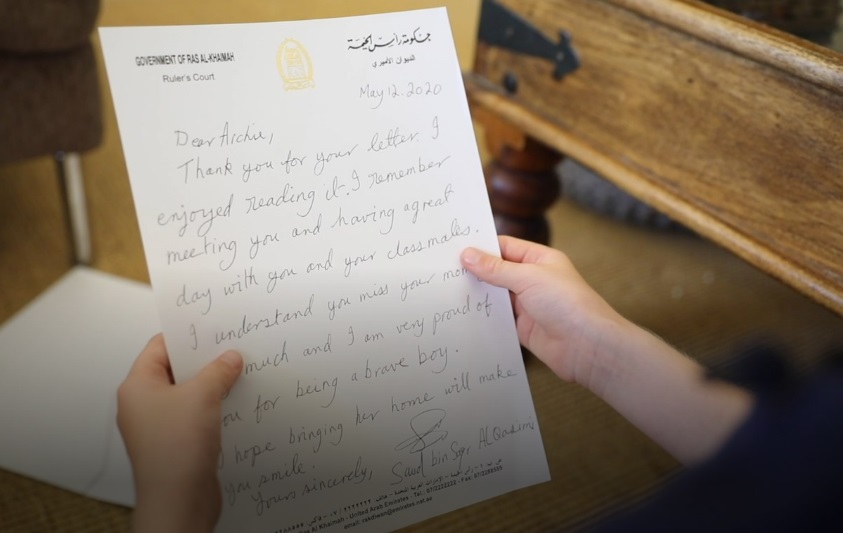 GOVERNMENT OF RAS AL-KHAIMAH
Ruler's Court
حكومة رأس الخيمة
الديوان الأميري
May 12. 2020
Dear Archie,
Thank you for your letter I
enjoyed reading it. I remember
meeting you and having a great
day with you and your classmates.
I understand you miss your mom
much and I am very proud of
you for being a brave boy.
I hope bringing her home will make
you smile!
Yours sincerely, Saud bin Saqr Al Qasimi
Ras Al Khaimah - United Arab Emirates - Tel.: 07/2222222 - Fax:
email: